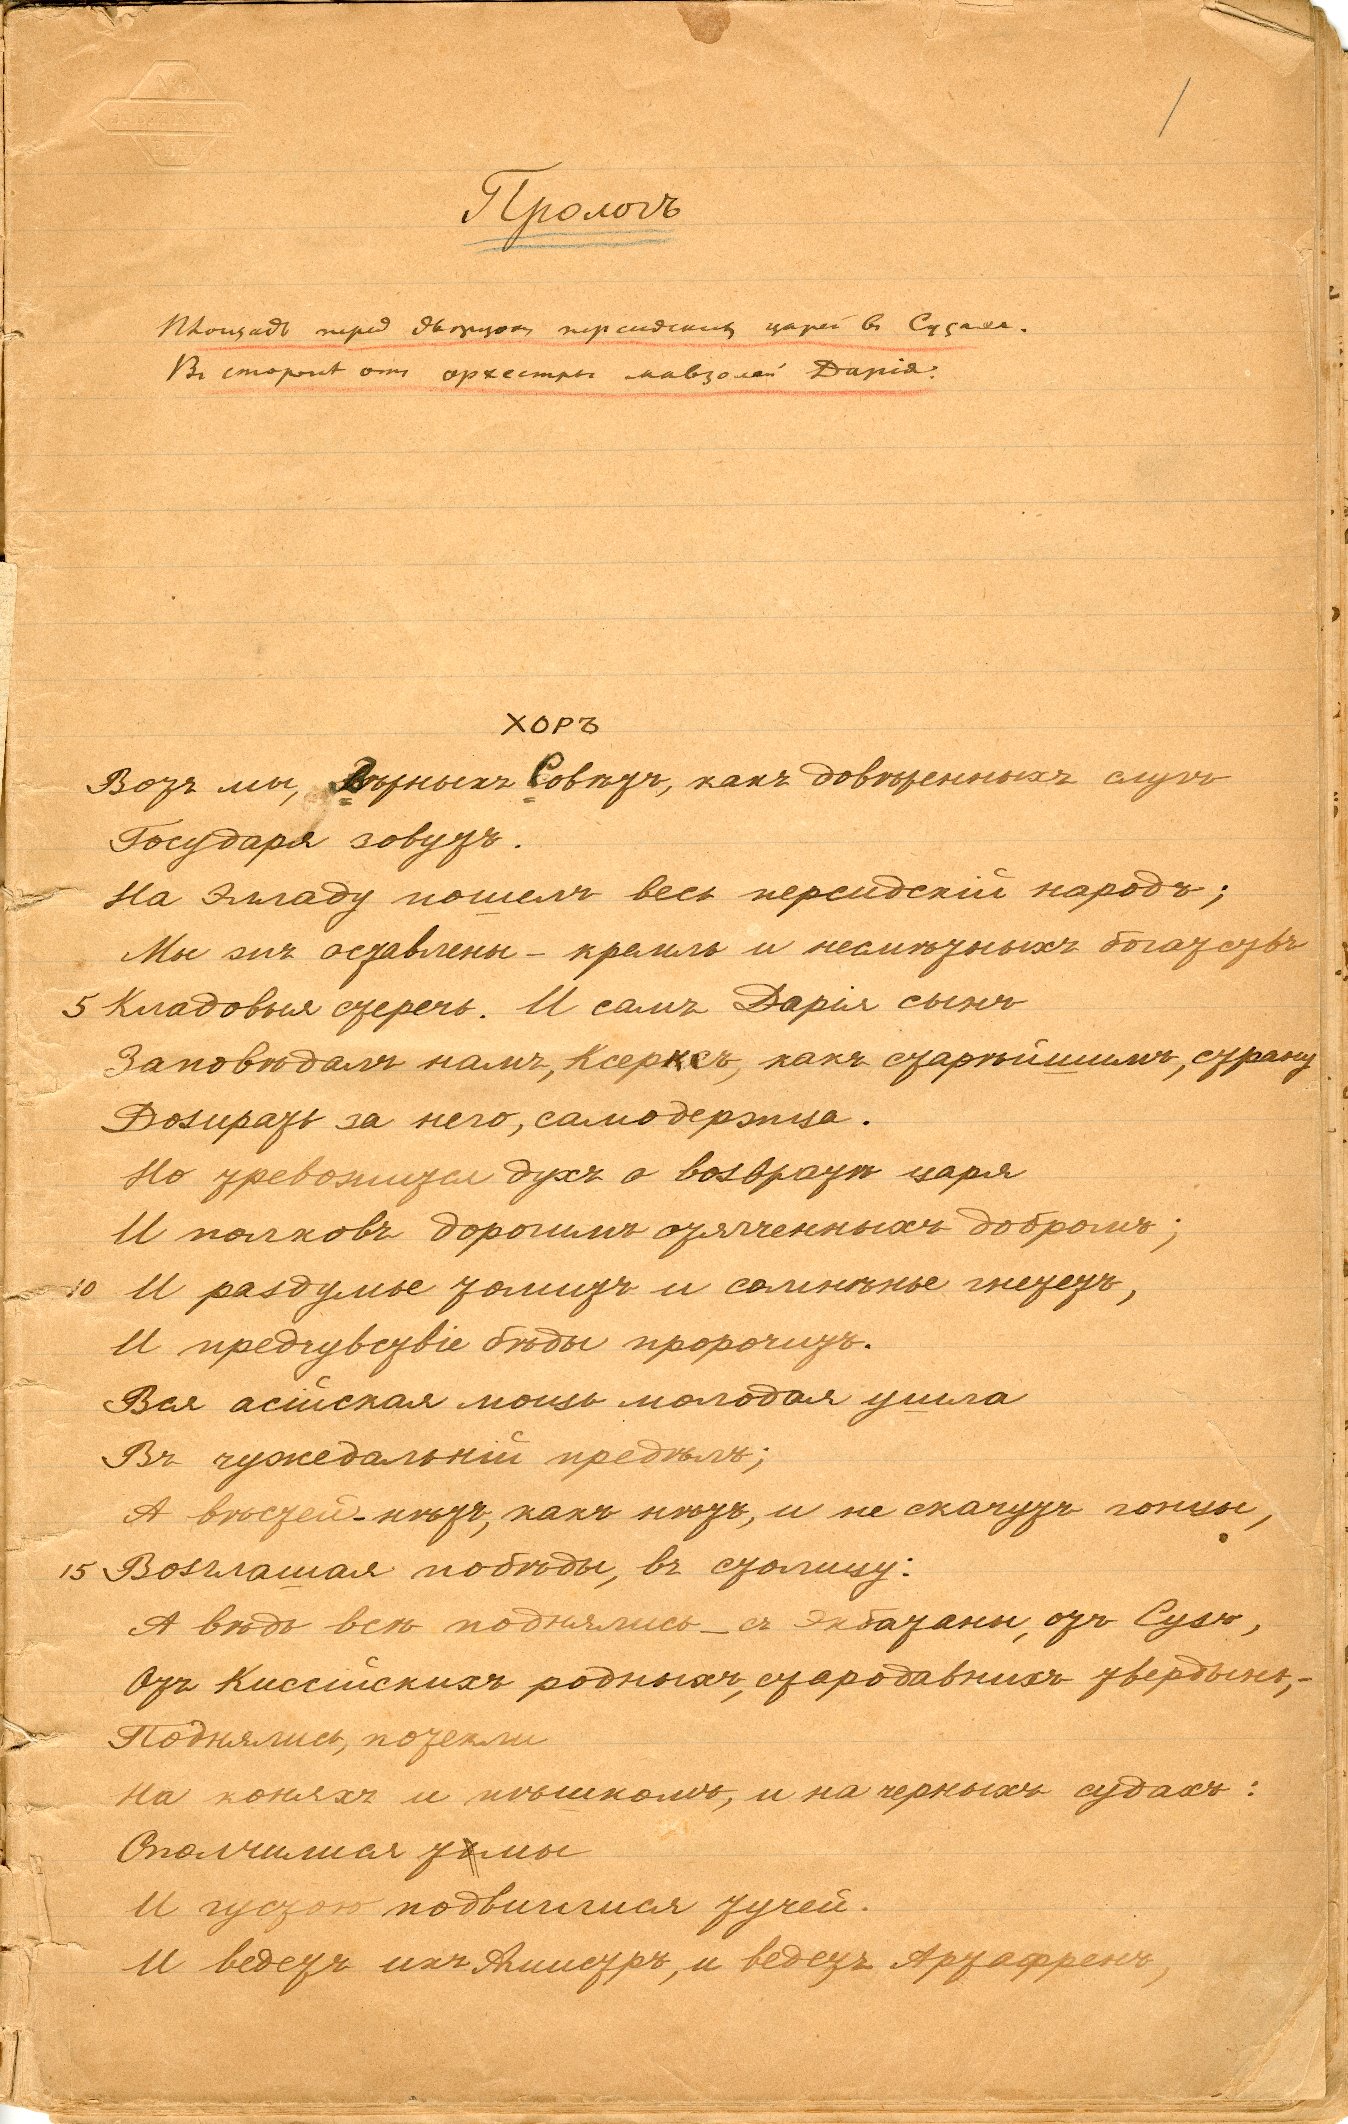 1
Прологъ
Площадь перед дворцом персидских царей в Сузахъ.
Въ сторонѣ отъ орхестры мавзолей Дарія.
ХОРЪ
Вотъ мы, Вѣрныхъ Совѣтъ, какъ довѣренныхъ слугъ
Государя зовутъ.
На Элладу пошелъ весь персидскій народъ;
Мы жъ оставлены – кремль и несмѣтныхъ богатствъ
5 Кладовыя стеречь. И самъ Дарія сынъ
Заповѣдалъ намъ, Ксерксъ, какъ старѣйшимъ, страну
Дозирать за него, самодержца.
Но тревожится духъ о возвратѣ царя
И полковъ дорогимъ отягченныхъ добромъ;
10 И раздумье томитъ и сомнѣнье гнететъ,
И предчувствіе бѣды пророчитъ.
Вся асійская мощь молодая ушла
Въ чужедальній предѣлъ;
А вѣстей – нѣтъ, какъ нѣтъ, и не скачутъ гонцы,
15 Возглашая побѣды, въ столицу:
А вѣдь всѣ поднялись – съ Экбатаны, отъ Сузъ,
Отъ Киссійскихъ родныхъ, стародавнихъ твердынь, –
Поднялись, потекли
На коняхъ и пѣшкомъ, и на черныхъ судахъ:
Ополчилися тьмы
И густою подвиглися тучей.
И ведетъ ихъ Амистръ, и ведетъ Артафренъ,